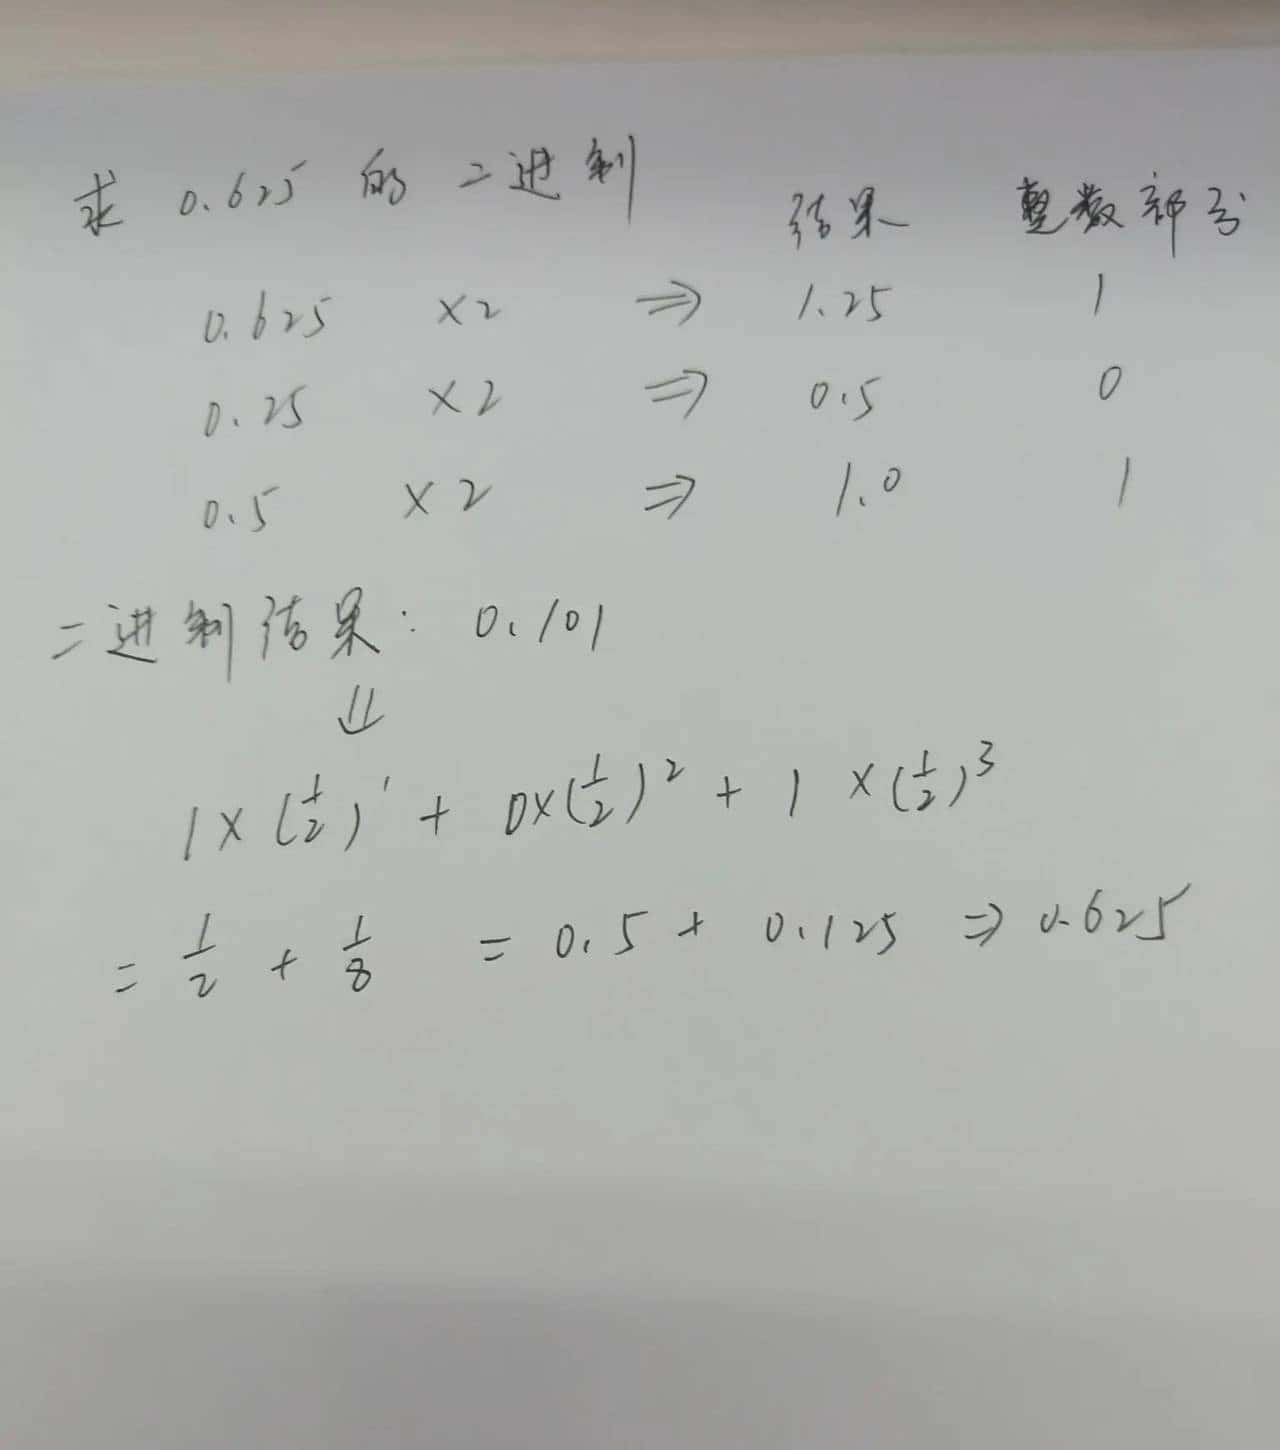 求 0.625 的 二进制
结果 整数部分
0.625 ×2 ⇒ 1.25 1
0.25 ×2 ⇒ 0.5 0
0.5 ×2 ⇒ 1.0 1
二进制结果: 0.101
⇓
1×(1/2)^1 + 0×(1/2)^2 + 1×(1/2)^3
= 1/2 + 1/8 = 0.5 + 0.125 ⇒ 0.625